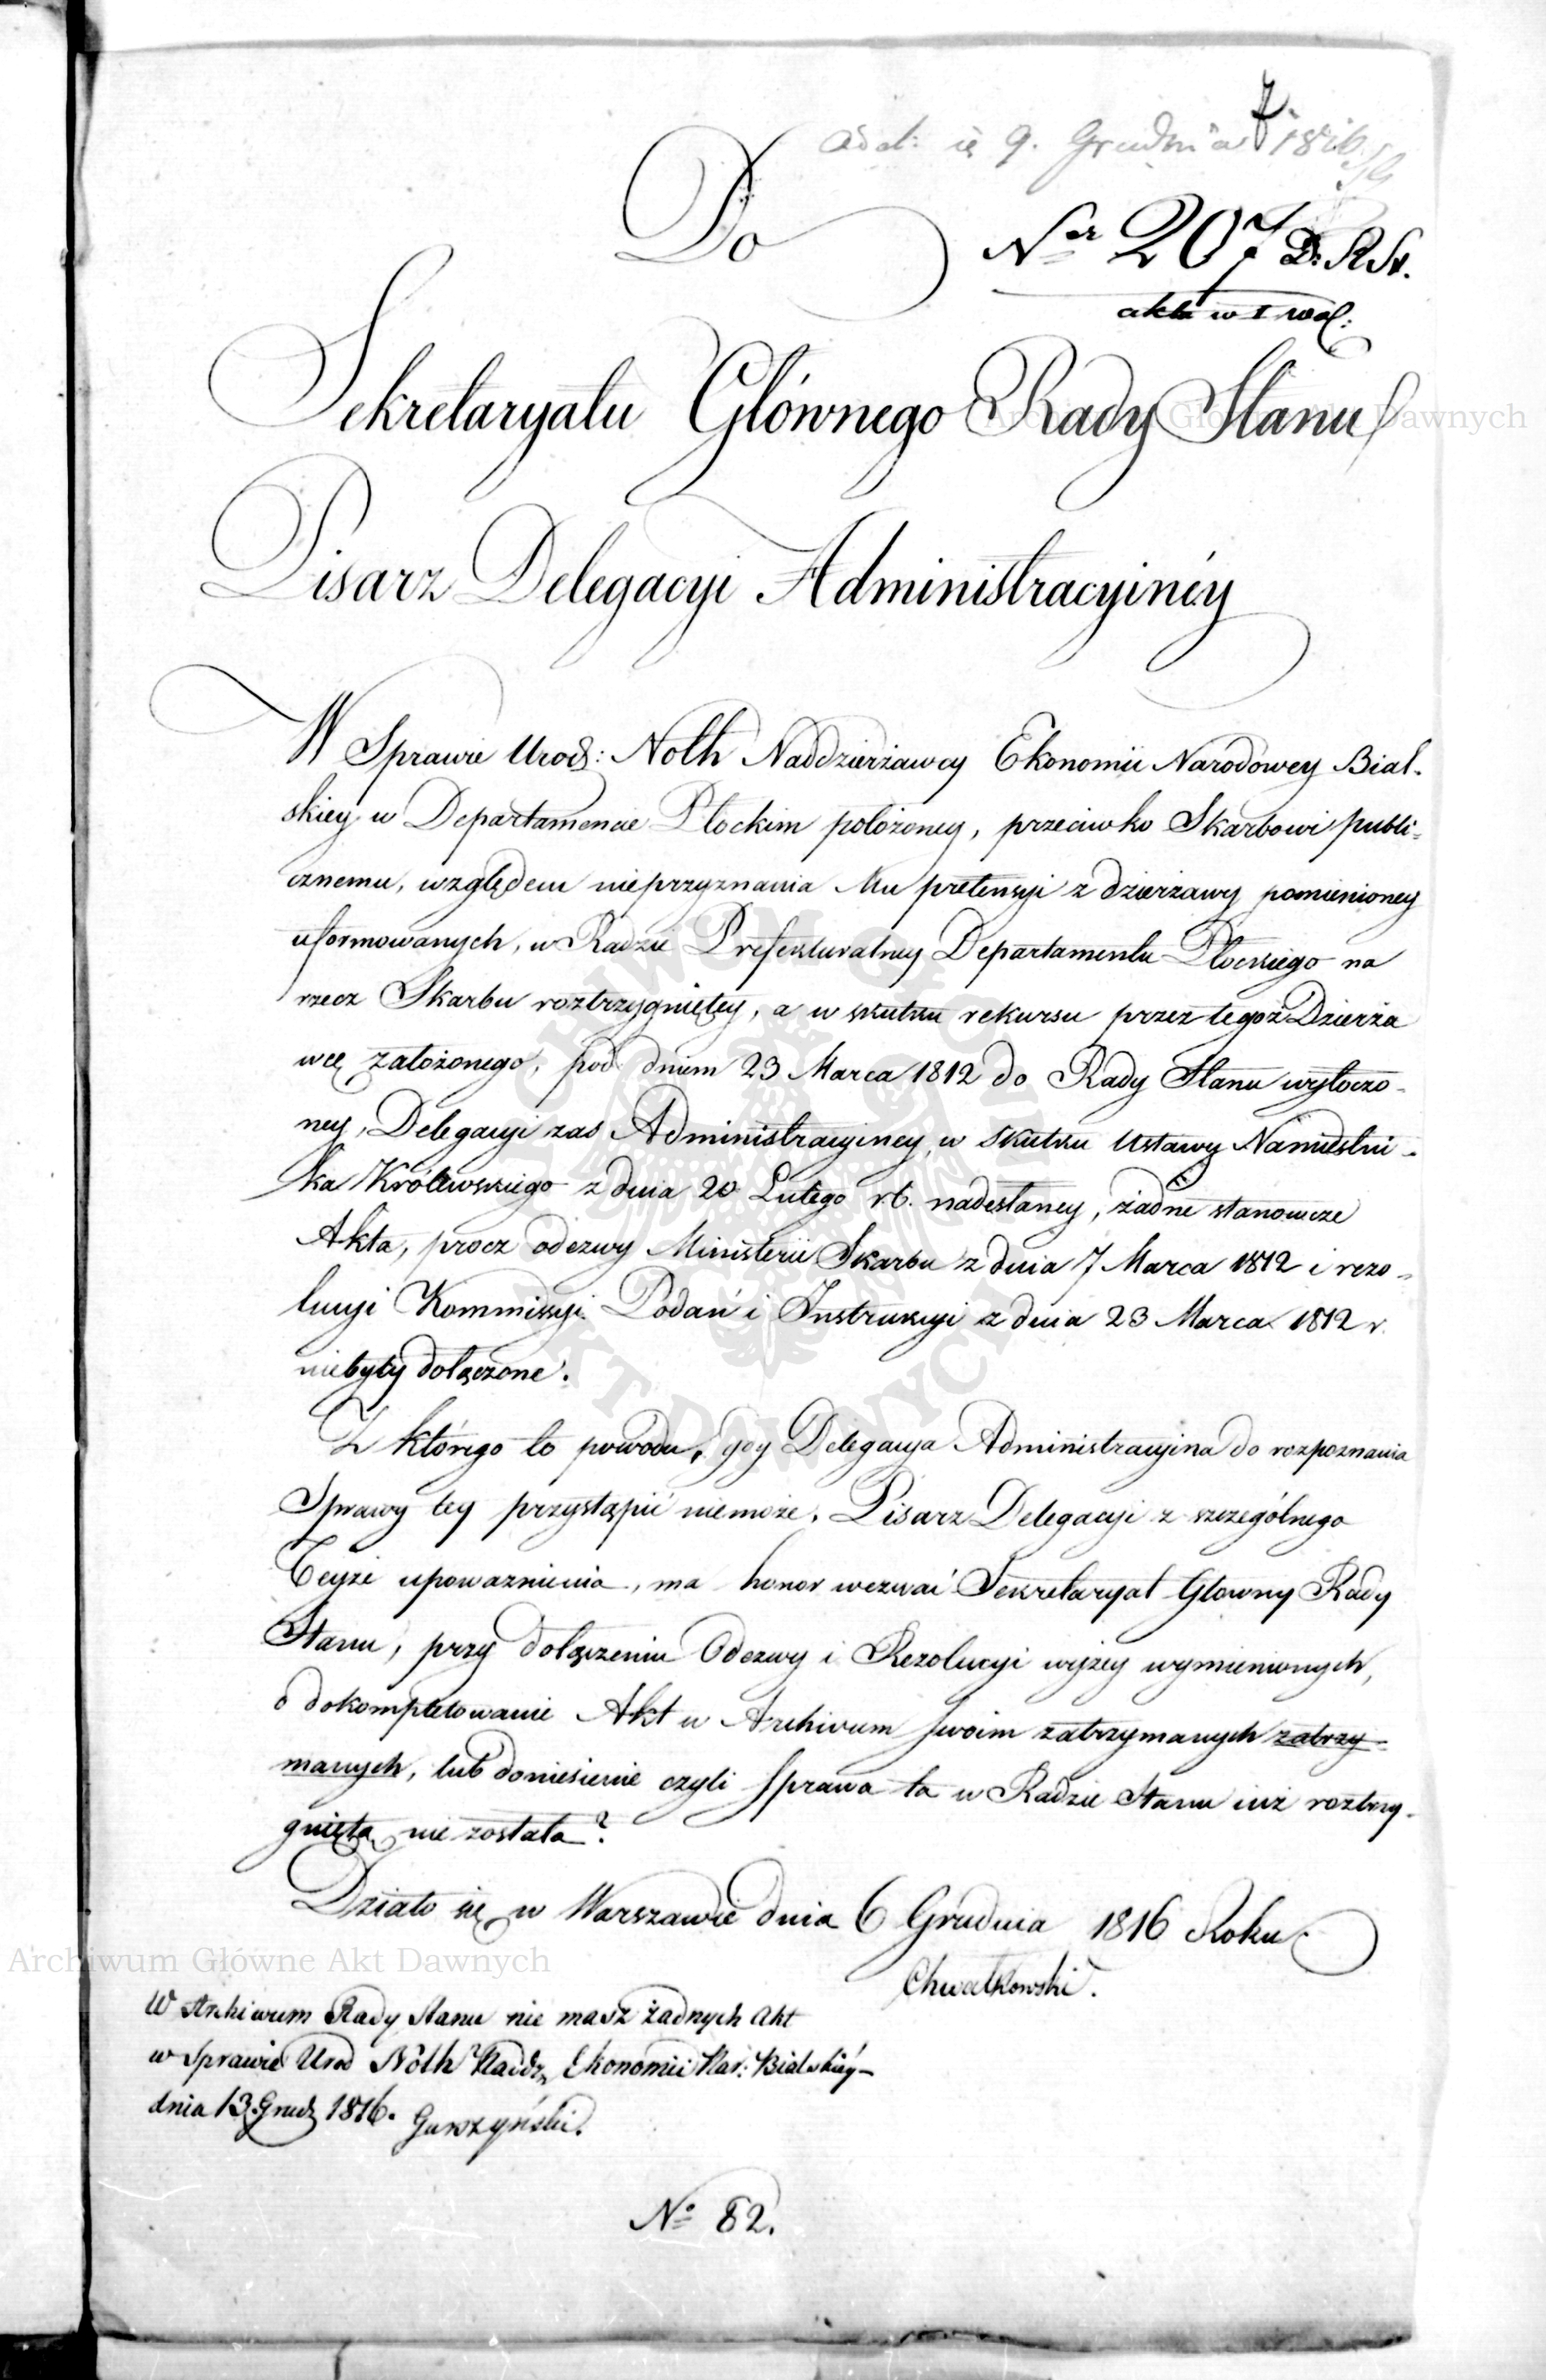 7.
odd: ię 9. Grudnia 1816
Do
Nr 207 D. R. St.
akta w I wol:
Sekretaryatu Głównego Rady Stanu
Pisarz Delegacyi Administracyinéy
W Sprawie Urod: Noth Naddzierżawcy Ekonomii Narodowey Bial-
skiey w Departamencie Płockim położoney, przeciwko Skarbowi publi=
cznemu, względem nieprzyznania Mu pretensyi z dzierżawy pomienioney
uformowanych, w Radzie Prefekturalney Departamentu Płockiego na
rzecz Skarbu roztrzygniętey, a w skutku rekursu przez tegoż Dzierża
wcę założonego, pod dniem 23 Marca 1812 do Rady Stanu wytoczo-
ney, Delegacyi zaś Administracyiney, w skutku Ustawy Namiestni-
ka Królewskiego z dnia 20 Lutego r.b. nadesłaney, żadne stanowcze
Akta, procz odezwy Ministerii Skarbu z dnia 7 Marca 1812 i rezo=
lucyi Kommissyi Podań i Instrukcyi z dnia 23 Marca 1812 r.
niebyły dołączone.
Z którego to powodu, gdy Delegacya Administracyina do rozpoznania
Sprawy tey przystąpić niemoże, Pisarz Delegacyi z szczególnego
Teyże upoważnienia, ma honor wezwać Sekretaryat Główny Rady
Stanu, przy dołączeniu Odezwy i Rezolucyi wyżey wymienionych,
o dokompletowanie Akt w Archivum swoim zatrzymanych zatrzy=
manych, lub doniesienie czyli sprawa ta w Radzie Stanu iuż roztrzy-
gnięta nie została?
Działo się w Warszawie dnia 6 Grudnia 1816 Roku
Chwałkowski.
W Archiwum Rady Stanu nie masz żadnych Akt
w Sprawie Urod Nöth Nadz, Ekonomii Nar: Bialskiéy-
dnia 13 Grud 1816. Garszyński.
No 82.
Archiwum Główne Akt Dawnych
Archiwum Główne Akt Dawnych
ARCHIWUM GŁÓWNE AKT DAWNYCH